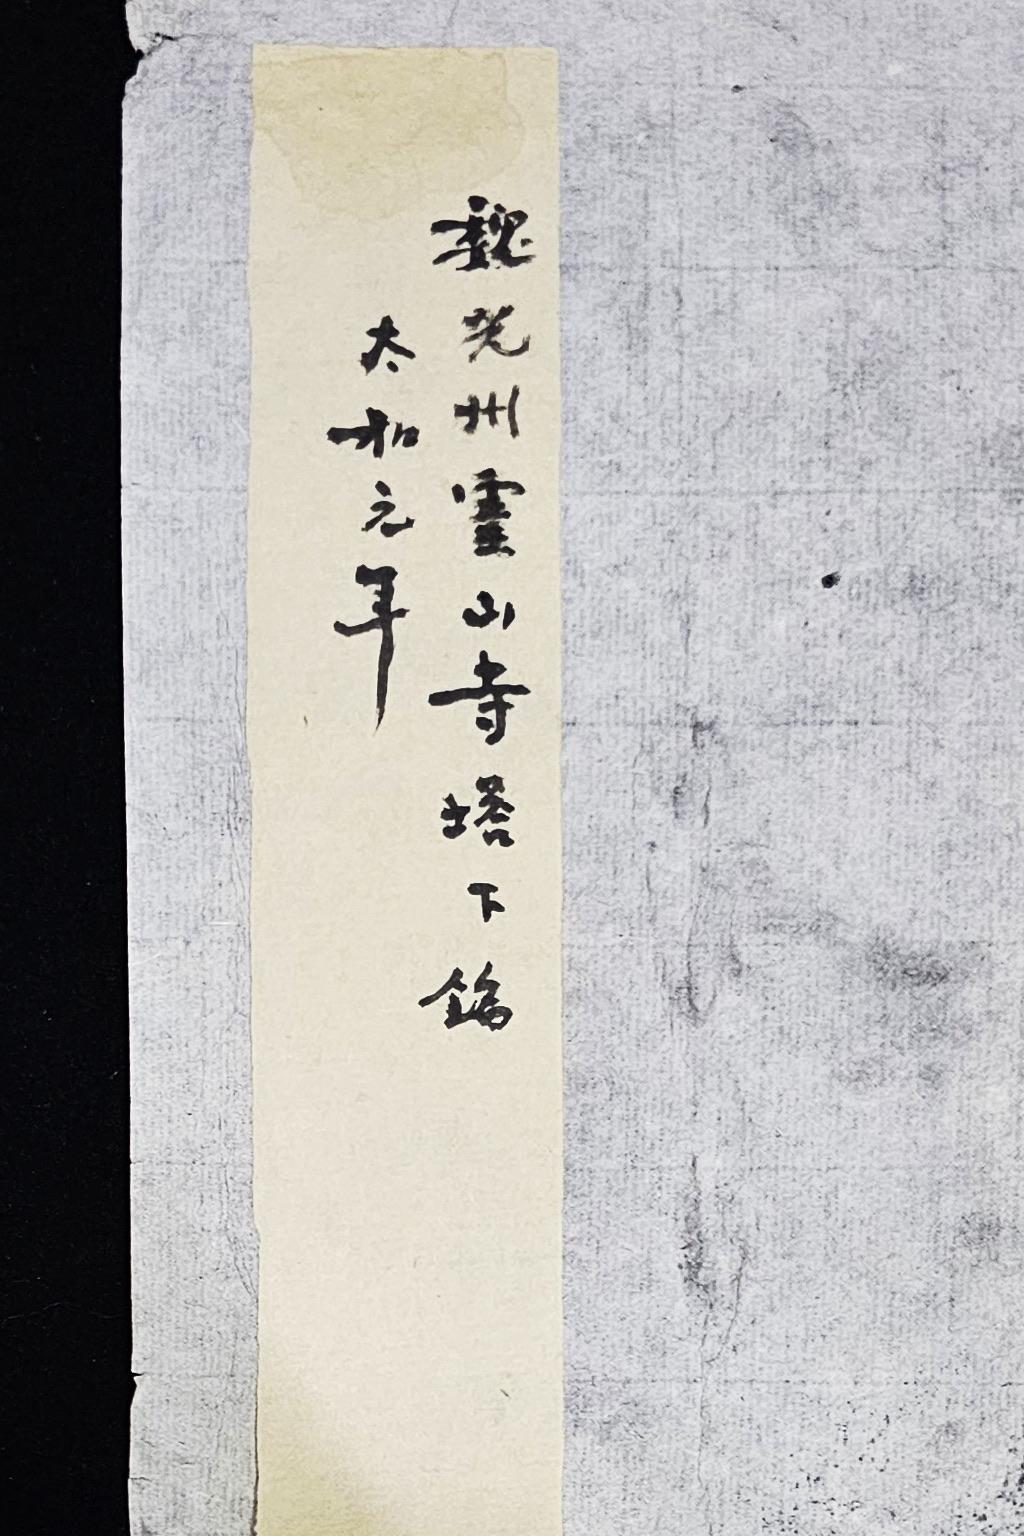 魏光州靈山寺塔下銘
太和元年